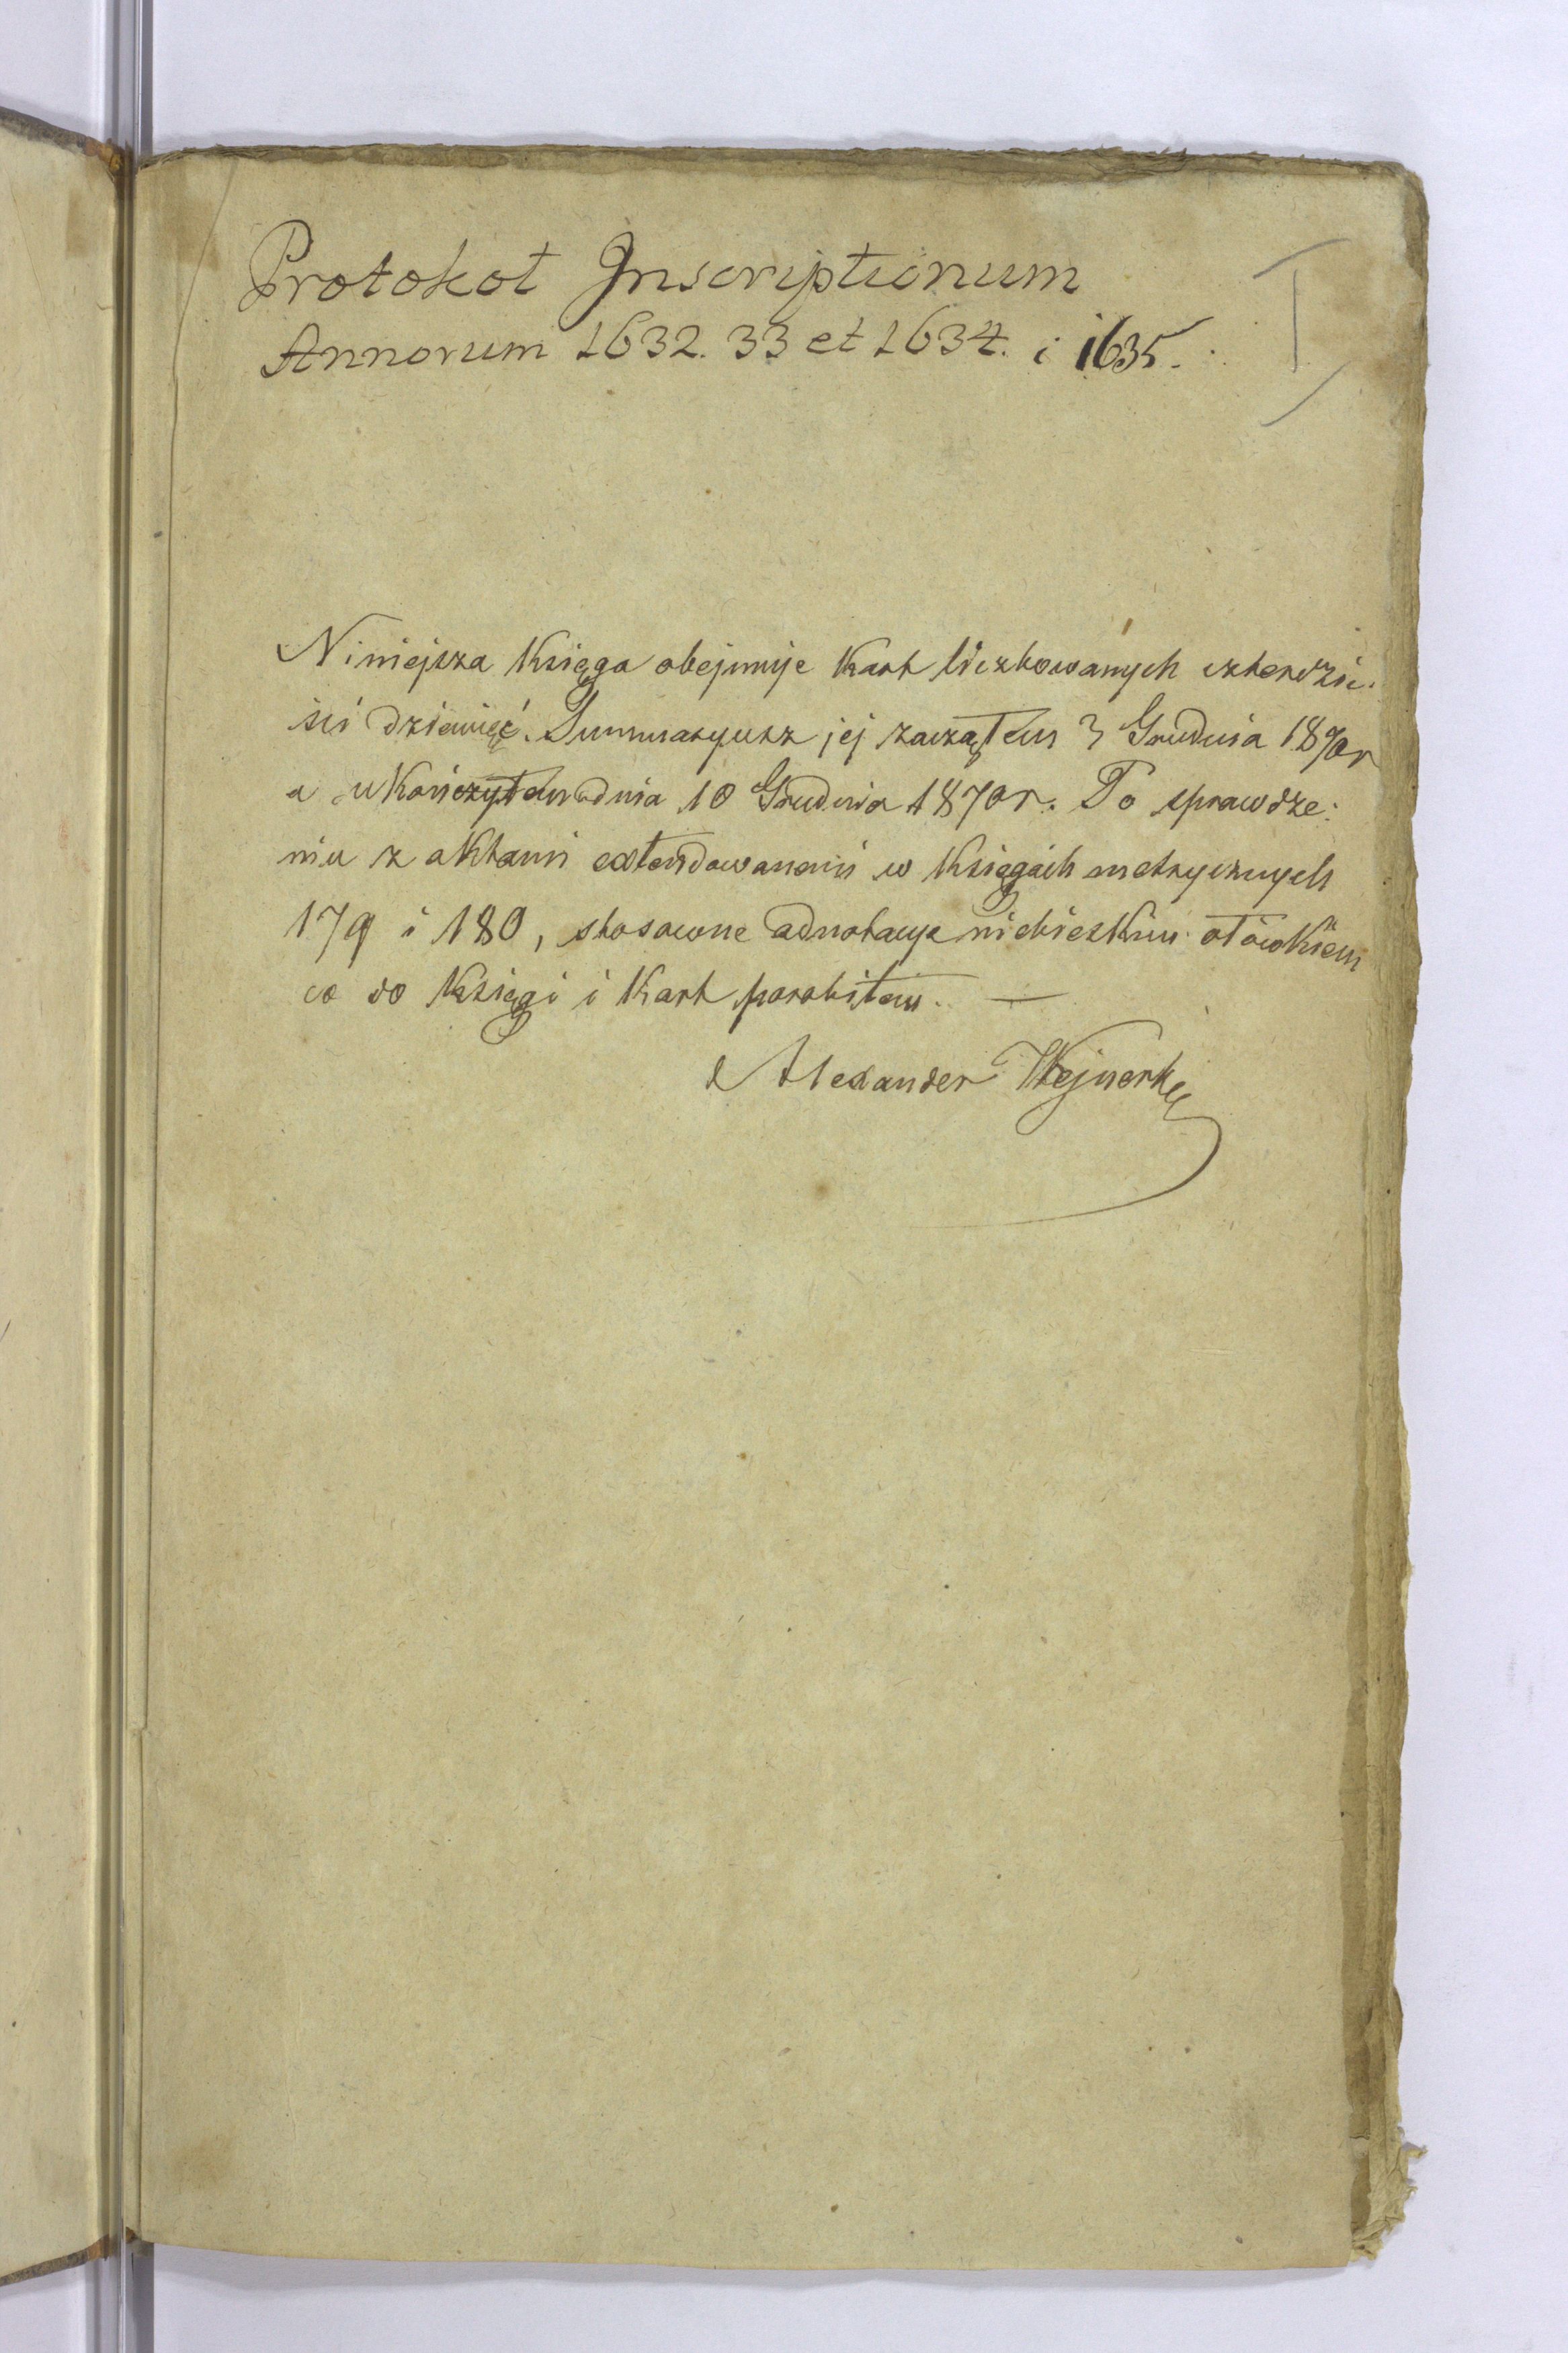 Protokoł Inscriptionum
I
Annorum 1632. 33 et 1634. i 1635.
Niniejsza Księga obejmuje Kart liczbowanych czterdzie:
ści dziewięć. Summaryusz jej zacząłem 3 Grudnia 1870 r
a ukończyłem dnia 10 Grudnia 1870 r. Po sprawdze:
niu z aktami extendowanemi w Księgach metrycznych
179 i 180, stosowne adnotacye niebieskim ołówkiem
co do Księgi i Kart porobiłem. —
Alexander Wejnert